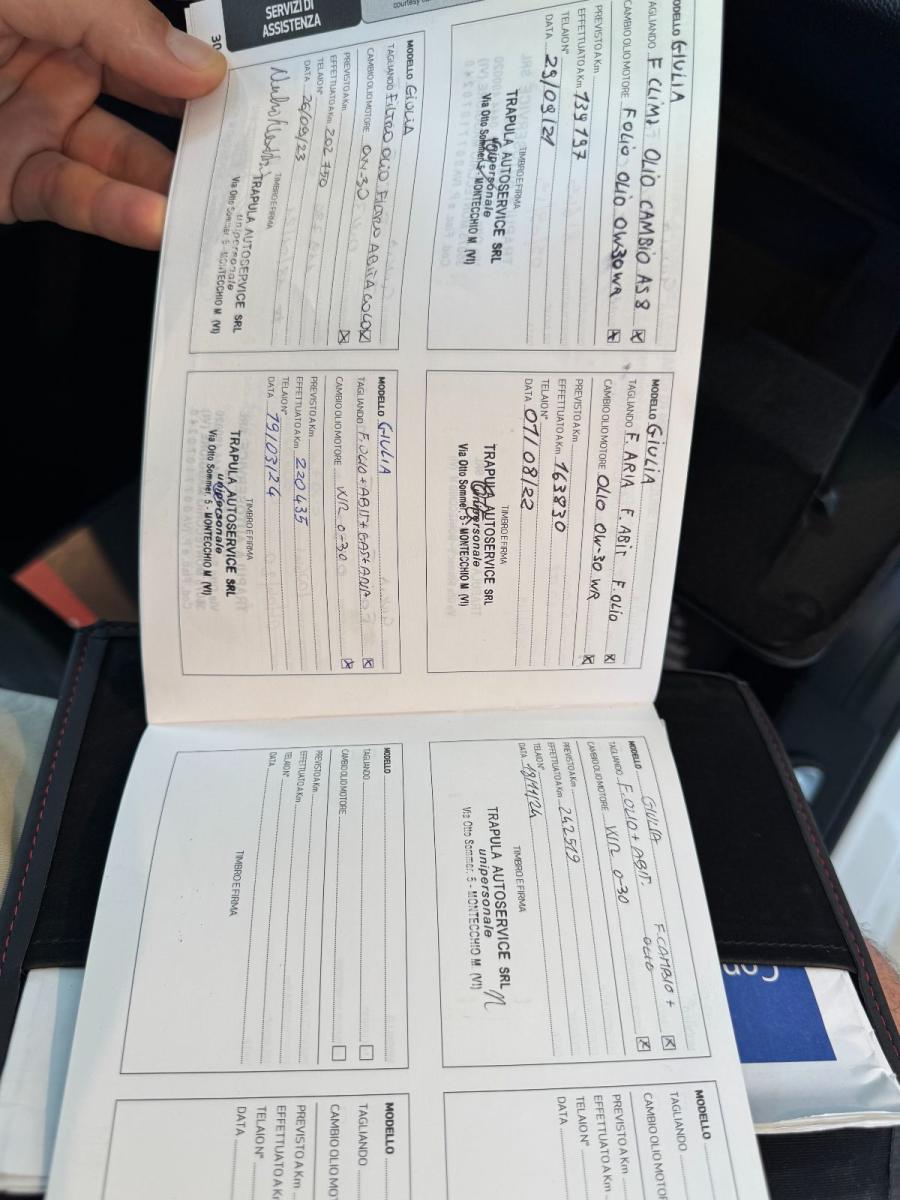 SERVIZI DI
ASSISTENZA
MODELLO GIULIA
TAGLIANDO F CLIMT OLIO CAMBIO AS8
CAMBIO OLIO MOTORE FOLIO OLIO OW30WR
PREVISTO A Km
EFFETTUATO A Km 139197
TELAIO N°
DATA 29/09/21
TIMBRO E FIRMA
TRAPULA AUTOSERVICE SRL
unipersonale
Via Otto Sommer, 5 - MONTECCHIO M. (VI)
MODELLO GIULIA
TAGLIANDO F. ARIA F. ABIT F. OLIO
CAMBIO OLIO MOTORE OLIO OW-30 WR
PREVISTO A Km
EFFETTUATO A Km 163830
TELAIO N°
DATA 01/08/22
TIMBRO E FIRMA
TRAPULA AUTOSERVICE SRL
unipersonale
Via Otto Sommer, 5 - MONTECCHIO M (VI)
MODELLO GIULIA
TAGLIANDO FILTRO OLIO FILTRO ABITACOLO
CAMBIO OLIO MOTORE OW-30
PREVISTO A Km
EFFETTUATO A Km 202 750
TELAIO N°
DATA 26/09/23
TIMBRO E FIRMA
TRAPULA AUTOSERVICE SRL
unipersonale
Via Otto Sommer, 5 - MONTECCHIO M (VI)
MODELLO GIULIA
TAGLIANDO F. OLIO + ABIT +
CAMBIO OLIO MOTORE WR 0-30
PREVISTO A Km
EFFETTUATO A Km 220435
TELAIO N°
DATA 19/03/24
TIMBRO E FIRMA
TRAPULA AUTOSERVICE SRL
unipersonale
Via Otto Sommer, 5 - MONTECCHIO M (VI)
MODELLO GIULIA
TAGLIANDO F. OLIO + ABIT. F. CAMBIO +
OLIO
CAMBIO OLIO MOTORE WR 0-30
PREVISTO A Km
EFFETTUATO A Km 242519
TELAIO N°
DATA 18/11/24
TIMBRO E FIRMA
TRAPULA AUTOSERVICE SRL
unipersonale
Via Otto Sommer, 5 - MONTECCHIO M (VI)
MODELLO
TAGLIANDO
CAMBIO OLIO MOTORE
PREVISTO A Km
EFFETTUATO A Km
TELAIO N°
DATA
TIMBRO E FIRMA
MODELLO
TAGLIANDO
CAMBIO OLIO MOTOR
PREVISTO A Km
EFFETTUATO A Km
TELAIO N°
DATA
MODELLO
TAGLIANDO
CAMBIO OLIO MOT
PREVISTO A Km
EFFETTUATO A Km
TELAIO N°
DATA
Con